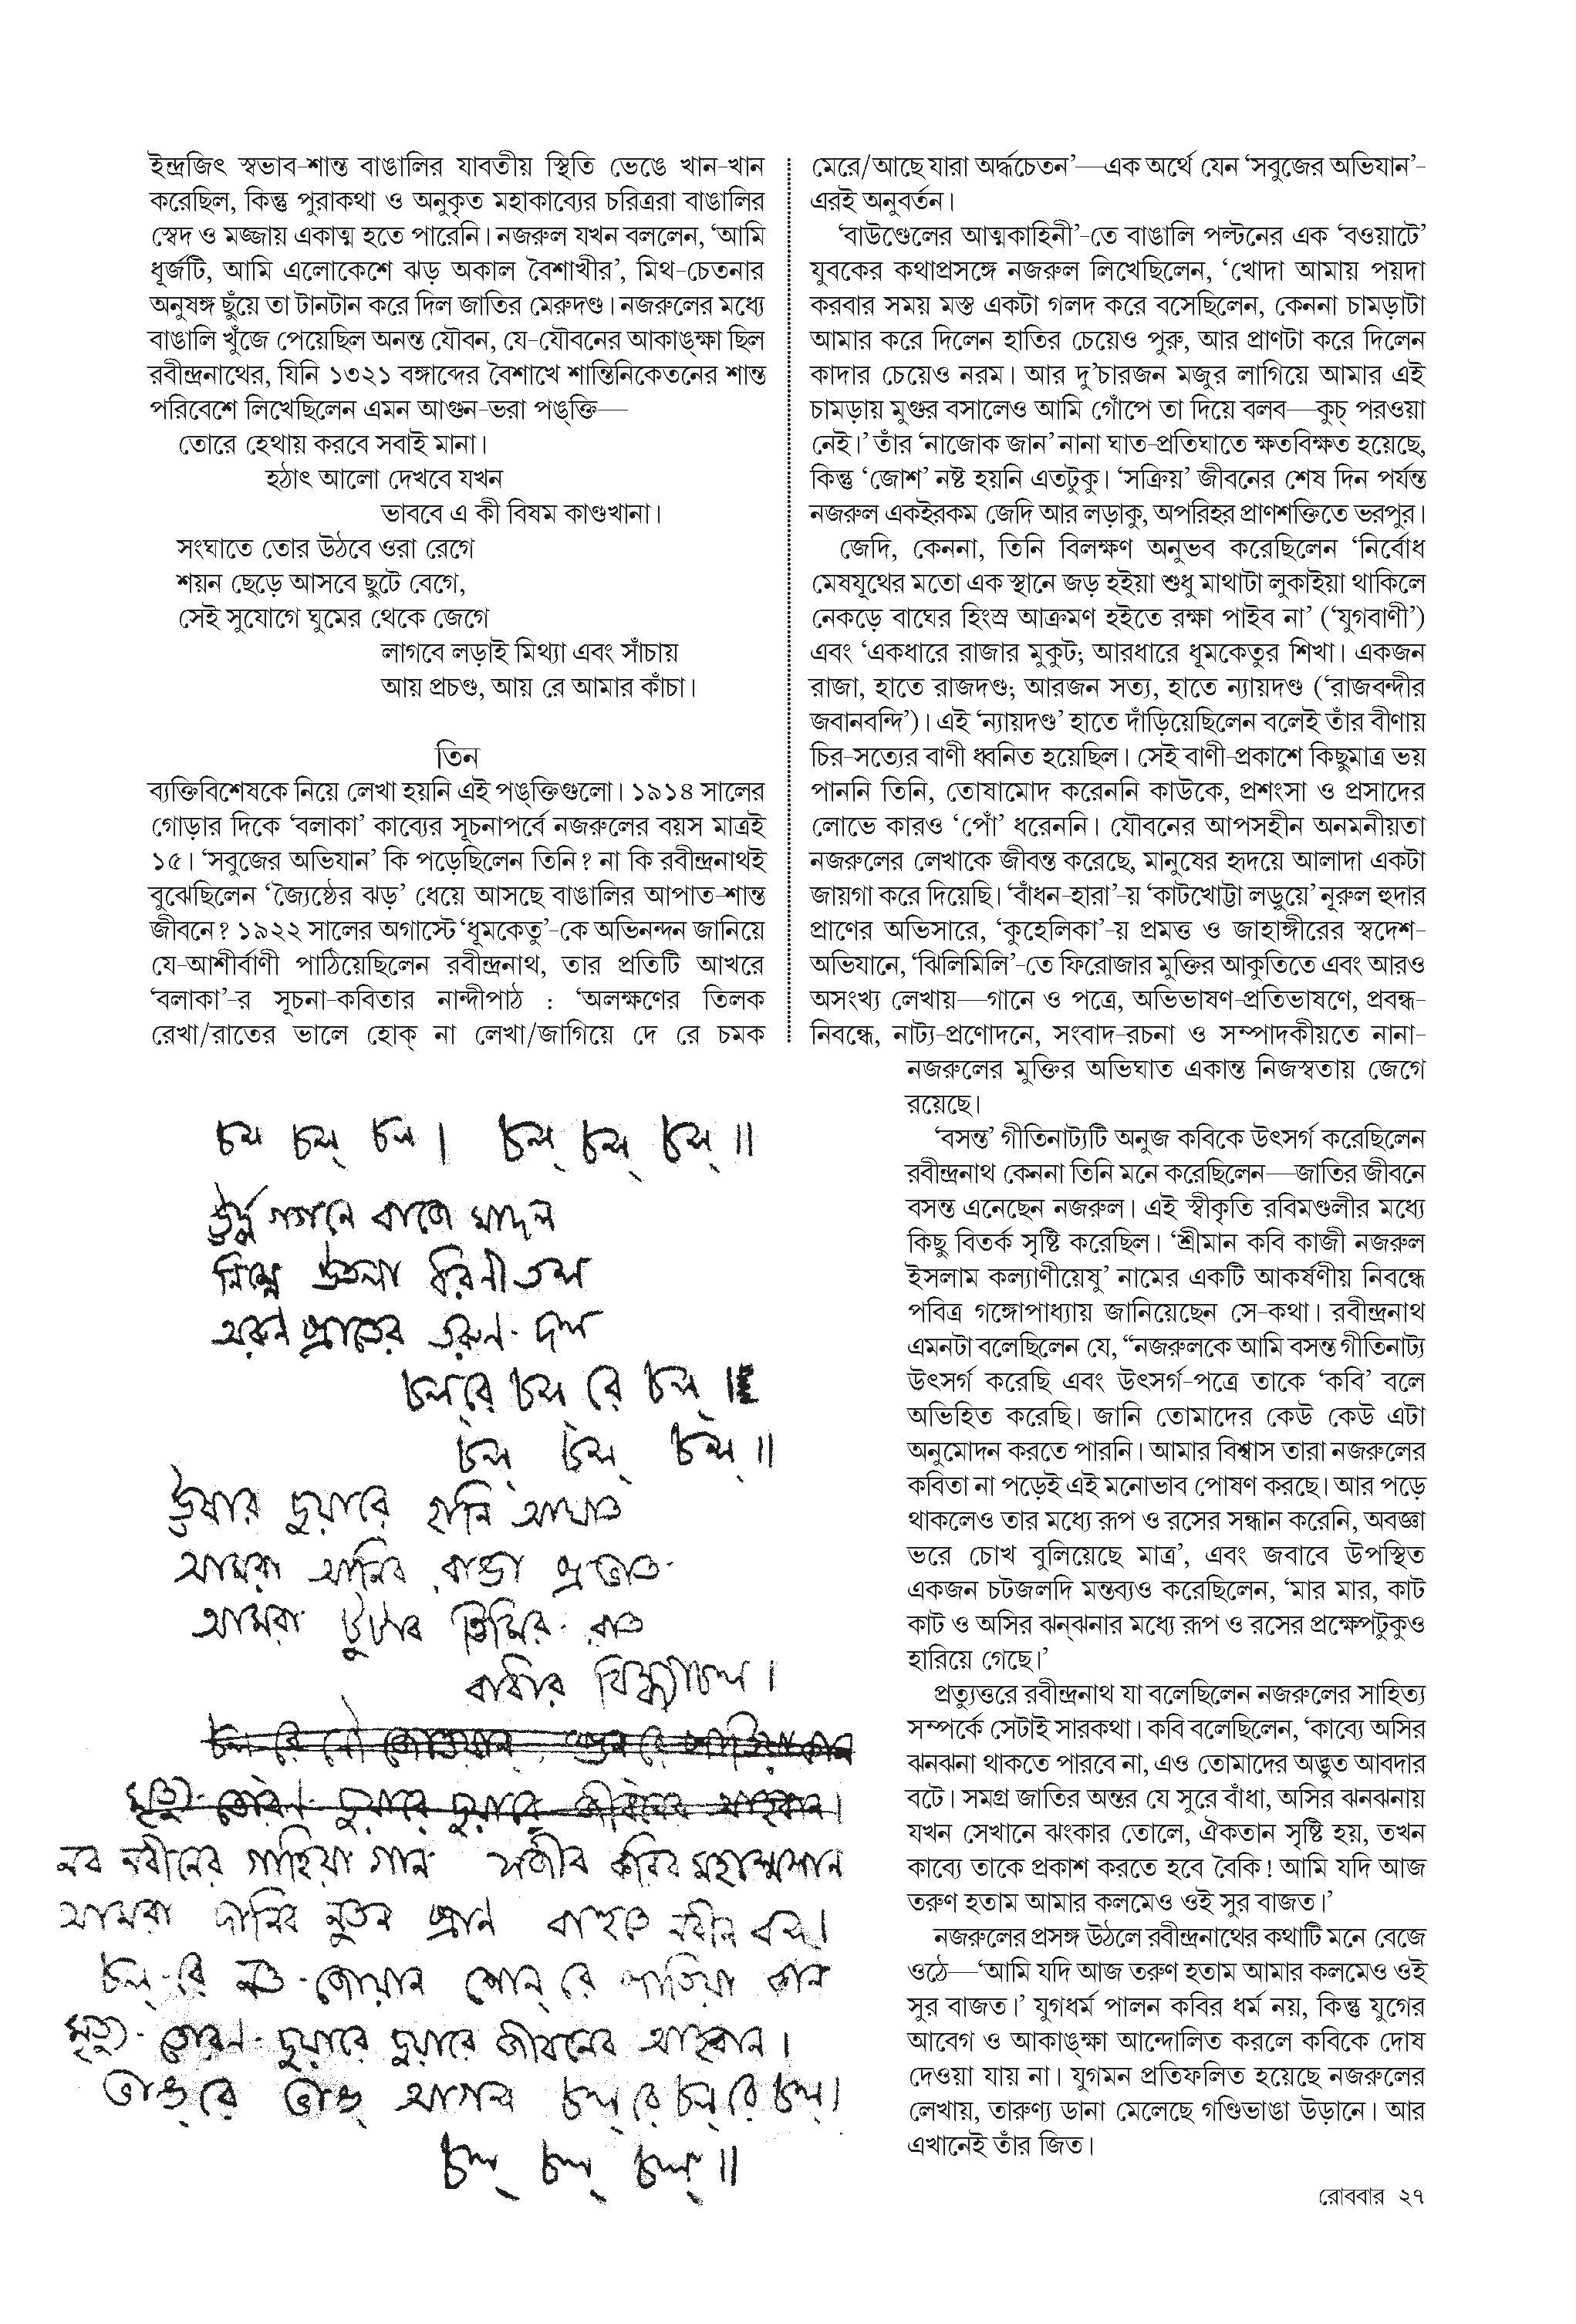 ইন্দ্রজিৎ স্বভাব-শান্ত বাঙালির যাবতীয় স্থিতি ভেঙে খান-খান
করেছিল, কিন্তু পুরাকথা ও অনুকৃত মহাকাব্যের চরিত্ররা বাঙালির
স্বেদ ও মজ্জায় একাত্ম হতে পারেনি। নজরুল যখন বললেন, ‘আমি
ধূর্জটি, আমি এলোকেশে ঝড় অকাল বৈশাখীর’, মিথ-চেতনার
অনুষঙ্গ ছুঁয়ে তা টানটান করে দিল জাতির মেরুদণ্ড। নজরুলের মধ্যে
বাঙালি খুঁজে পেয়েছিল অনন্ত যৌবন, যে-যৌবনের আকাঙ্ক্ষা ছিল
রবীন্দ্রনাথের, যিনি ১৩২১ বঙ্গাব্দের বৈশাখে শান্তিনিকেতনের শান্ত
পরিবেশে লিখেছিলেন এমন আগুন-ভরা পঙ্‌ক্তি—
তোরে হেথায় করবে সবাই মানা।
হঠাৎ আলো দেখবে যখন
ভাববে এ কী বিষম কাণ্ডখানা।
সংঘাতে তোর উঠবে ওরা রেগে
শয়ন ছেড়ে আসবে ছুটে বেগে,
সেই সুযোগে ঘুমের থেকে জেগে
লাগবে লড়াই মিথ্যা এবং সাঁচায়
আয় প্রচণ্ড, আয় রে আমার কাঁচা।
তিন
ব্যক্তিবিশেষকে নিয়ে লেখা হয়নি এই পঙ্‌ক্তিগুলো। ১৯১৪ সালের
গোড়ার দিকে ‘বলাকা’ কাব্যের সূচনাপর্বে নজরুলের বয়স মাত্রই
১৫। ‘সবুজের অভিযান’ কি পড়েছিলেন তিনি? না কি রবীন্দ্রনাথই
বুঝেছিলেন ‘জ্যৈষ্ঠের ঝড়’ ধেয়ে আসছে বাঙালির আপাত-শান্ত
জীবনে? ১৯২২ সালের অগাস্টে ‘ধূমকেতু’-কে অভিনন্দন জানিয়ে
যে-আশীর্বাণী পাঠিয়েছিলেন রবীন্দ্রনাথ, তার প্রতিটি আখরে
‘বলাকা’-র সূচনা-কবিতার নান্দীপাঠ : ‘অলক্ষণের তিলক
রেখা/রাতের ভালে হোক্ না লেখা/জাগিয়ে দে রে চমক
মেরে/আছে যারা অর্দ্ধচেতন’—এক অর্থে যেন ‘সবুজের অভিযান’-
এরই অনুবর্তন।
‘বাউণ্ডেলের আত্মকাহিনী’-তে বাঙালি পল্টনের এক ‘বওয়াটে’
যুবকের কথাপ্রসঙ্গে নজরুল লিখেছিলেন, ‘খোদা আমায় পয়দা
করবার সময় মস্ত একটা গলদ করে বসেছিলেন, কেননা চামড়াটা
আমার করে দিলেন হাতির চেয়েও পুরু, আর প্রাণটা করে দিলেন
কাদার চেয়েও নরম। আর দু’চারজন মজুর লাগিয়ে আমার এই
চামড়ায় মুগুর বসালেও আমি গোঁপে তা দিয়ে বলব—কুচ্ পরওয়া
নেই।’ তাঁর ‘নাজোক জান’ নানা ঘাত-প্রতিঘাতে ক্ষতবিক্ষত হয়েছে,
কিন্তু ‘জোশ’ নষ্ট হয়নি এতটুকু। ‘সক্রিয়’ জীবনের শেষ দিন পর্যন্ত
নজরুল একইরকম জেদি আর লড়াকু, অপরিহর প্রাণশক্তিতে ভরপুর।
জেদি, কেননা, তিনি বিলক্ষণ অনুভব করেছিলেন ‘নির্বোধ
মেষযূথের মতো এক স্থানে জড় হইয়া শুধু মাথাটা লুকাইয়া থাকিলে
নেকড়ে বাঘের হিংস্র আক্রমণ হইতে রক্ষা পাইব না’ (‘যুগবাণী’)
এবং ‘একধারে রাজার মুকুট; আরধারে ধূমকেতুর শিখা। একজন
রাজা, হাতে রাজদণ্ড; আরজন সত্য, হাতে ন্যায়দণ্ড (‘রাজবন্দীর
জবানবন্দি’)। এই ‘ন্যায়দণ্ড’ হাতে দাঁড়িয়েছিলেন বলেই তাঁর বীণায়
চির-সত্যের বাণী ধ্বনিত হয়েছিল। সেই বাণী-প্রকাশে কিছুমাত্র ভয়
পাননি তিনি, তোষামোদ করেননি কাউকে, প্রশংসা ও প্রসাদের
লোভে কারও ‘পোঁ’ ধরেননি। যৌবনের আপসহীন অনমনীয়তা
নজরুলের লেখাকে জীবন্ত করেছে, মানুষের হৃদয়ে আলাদা একটা
জায়গা করে দিয়েছি। ‘বাঁধন-হারা’-য় ‘কাটখোট্টা লড়ুয়ে’ নূরুল হুদার
প্রাণের অভিসারে, ‘কুহেলিকা’-য় প্রমত্ত ও জাহাঙ্গীরের স্বদেশ-
অভিযানে, ‘ঝিলিমিলি’-তে ফিরোজার মুক্তির আকুতিতে এবং আরও
অসংখ্য লেখায়—গানে ও পত্রে, অভিভাষণ-প্রতিভাষণে, প্রবন্ধ-
নিবন্ধে, নাট্য-প্রণোদনে, সংবাদ-রচনা ও সম্পাদকীয়তে নানা-
নজরুলের মুক্তির অভিঘাত একান্ত নিজস্বতায় জেগে
রয়েছে।
‘বসন্ত’ গীতিনাট্যটি অনুজ কবিকে উৎসর্গ করেছিলেন
রবীন্দ্রনাথ কেননা তিনি মনে করেছিলেন—জাতির জীবনে
বসন্ত এনেছেন নজরুল। এই স্বীকৃতি রবিমণ্ডলীর মধ্যে
কিছু বিতর্ক সৃষ্টি করেছিল। ‘শ্রীমান কবি কাজী নজরুল
ইসলাম কল্যাণীয়েষু’ নামের একটি আকর্ষণীয় নিবন্ধে
পবিত্র গঙ্গোপাধ্যায় জানিয়েছেন সে-কথা। রবীন্দ্রনাথ
এমনটা বলেছিলেন যে, “নজরুলকে আমি বসন্ত গীতিনাট্য
উৎসর্গ করেছি এবং উৎসর্গ-পত্রে তাকে ‘কবি’ বলে
অভিহিত করেছি। জানি তোমাদের কেউ কেউ এটা
অনুমোদন করতে পারনি। আমার বিশ্বাস তারা নজরুলের
কবিতা না পড়েই এই মনোভাব পোষণ করছে। আর পড়ে
থাকলেও তার মধ্যে রূপ ও রসের সন্ধান করেনি, অবজ্ঞা
ভরে চোখ বুলিয়েছে মাত্র’, এবং জবাবে উপস্থিত
একজন চটজলদি মন্তব্যও করেছিলেন, ‘মার মার, কাট
কাট ও অসির ঝন্‌ঝনার মধ্যে রূপ ও রসের প্রক্ষেপটুকুও
হারিয়ে গেছে।’
প্রত্যুত্তরে রবীন্দ্রনাথ যা বলেছিলেন নজরুলের সাহিত্য
সম্পর্কে সেটাই সারকথা। কবি বলেছিলেন, ‘কাব্যে অসির
ঝনঝনা থাকতে পারবে না, এও তোমাদের অদ্ভুত আবদার
বটে। সমগ্র জাতির অন্তর যে সুরে বাঁধা, অসির ঝনঝনায়
যখন সেখানে ঝংকার তোলে, ঐকতান সৃষ্টি হয়, তখন
কাব্যে তাকে প্রকাশ করতে হবে বৈকি! আমি যদি আজ
তরুণ হতাম আমার কলমেও ওই সুর বাজত।’
নজরুলের প্রসঙ্গ উঠলে রবীন্দ্রনাথের কথাটি মনে বেজে
ওঠে—‘আমি যদি আজ তরুণ হতাম আমার কলমেও ওই
সুর বাজত।’ যুগধর্ম পালন কবির ধর্ম নয়, কিন্তু যুগের
আবেগ ও আকাঙ্ক্ষা আন্দোলিত করলে কবিকে দোষ
দেওয়া যায় না। যুগমন প্রতিফলিত হয়েছে নজরুলের
লেখায়, তারুণ্য ডানা মেলেছে গণ্ডিভাঙা উড়ানে। আর
এখানেই তাঁর জিত।
চল চল্ চল। চল্ চল্ চল্॥
ঊর্দ্ধ গগনে বাজে মাদল
নিম্নে উতলা ধরনীতল
অরুন প্রাতের তরুন-দল
চল্‌রে চল রে চল্।
চল্ চল্ চল্॥
ঊষার দুয়ারে হানি আঘাত
আমরা আনিব রাঙা প্রভাত
আমরা টুটাব তিমির-রাত
বাধার বিন্ধ্যাচল।
চল রে নৌ জোয়ান, শোন রে পাতিয়া কান
মৃত্যু-তোরণ-দুয়ারে দুয়ারে জীবনের আহ্বান।
নব নবীনের গাহিয়া গান সজীব করিব মহাশ্মশান
আমরা দানিব নূতন প্রান বাহুতে নবীন বল।
চল্-রে নও-জোয়ান শোন্ রে পাতিয়া কান
মৃত্যু-তোরণ-দুয়ারে দুয়ারে জীবনের আহ্বান।
ভাঙ্‌রে ভাঙ্ আগল চল্ রে চল্ রে চল্।
চল্ চল্ চল্॥
রোববার ২৭